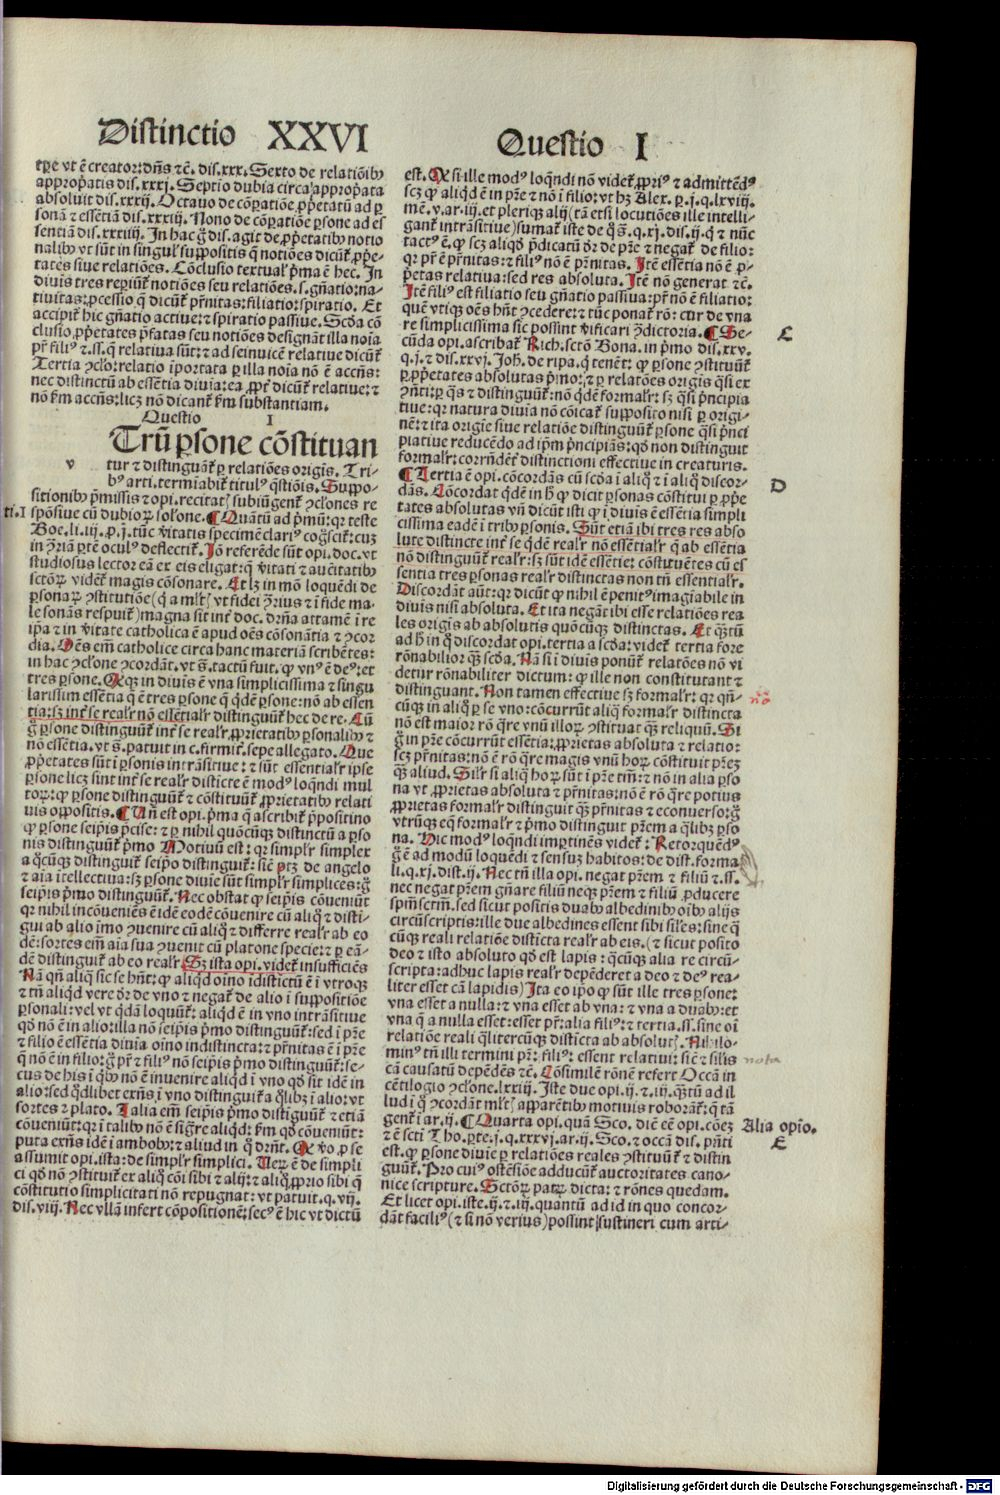 Distinctio XXVI
Questio I
tꝑe vt ē creator: dñs ⁊č. dis.xxx. Sexto de relatiōibꝰ
appropꝛiatis dis.xxxj. Septio dubia circa appropꝛiata
absoluit dis.xxxij. Octauo de cōꝑatiōe ꝓpꝛietatū ad ꝑ
sonā ⁊ essentiā dis.xxxiij. Nono de cōꝑatiōe ꝑsone ad es
sentiā dis.xxxiiij. In hac ḡ dis. agit de ꝓpꝛietatibꝰ notio
nalibꝰ vt sūt in singul' suppositis q̄ notiōes dicūt̄ ꝓpꝛie
tates siue relatiōes. Cōclusio textual' pꝛima ē hec. In
diuis tres reꝑiūt̄ notiōes seu relatiōes. s. gn̄atio: na-
tiuitas: ꝓcessio q̄ dicūt̄ pr̄nitas: filiatio: spiratio. Et
accipit̄ hic gn̄atio actiue: ⁊ spiratio passiue. Scd̄a cō
clusio ꝓpꝛietates pꝛefatas seu notiōes designāt illa noīa
pr̄ filiꝰ ⁊ .ss. q̄ relatiua sūt: ⁊ ad seinuicē relatiue dicūt̄
Tertia ꝯclo: relatio īpoꝛtata ꝑ illa noīa nō ē accn̄s:
nec distinctū ab essentia diuia: ea ꝓpt̄ dicūt̄ relatiue: ⁊
nō fm̄ accn̄s: licꝫ nō dicant̄ fm̄ substantiam.
Questio I
Trū ꝑsone cōstituan
v tur ⁊ distinguāt̄ ꝑ relatiōes oꝛigīs. Tri-
bꝰ arti. termīabit̄ titulꝰ q̄stiōis. Suppo-
sitionibꝰ pꝛemissis ⁊ opi. recitatꝭ subiūgent̄ ꝯclones re
ti.I spōsiue cū dubioꝝ solōne. ¶ Quātū ad pꝛimū: qꝛ teste
Boe. li.iij. ꝓ.j. tūc v̄itatis specimē clariꝰ cogscit̄: cuꝫ
in ꝯ̄riā ꝑtē oculꝰ deflectit̄. Iō referēde sūt opi. doc. vt
studiosus lectoꝛ eā ex eis eligat: q̄ v̄itati ⁊ auctētatibꝰ
sctōꝝ videt̄ magis cōsonare. Et lꝫ in mō loquēdi de
ꝑsonaꝝ ꝯstitutiōe (q̄ a mltꝭ vt fidei ꝯ̄riꝰ ⁊ ī fide ma-
le sonās respuit̄) magna sit int̄ doc. dr̄nia attamē ī re
ip̄a ⁊ in v̄itate catholica ē apud oēs cōsonātia ⁊ ꝯcoꝛ
dia. Oēs em̄ catholice circa hanc materiā scribētes:
in hac ꝯclone ꝯcoꝛdāt. vt s. tactū fuit. ꝙ vnꝰ ē deꝰ: et
tres ꝑsone. Exꝙ in diuis ē vna simplicissima ⁊ singu
larissim essētia q̄ ē tres ꝑsone q̄ qdē ꝑsone: nō ab essen
tia: sꝫ int̄ se realr̄ nō essētialr̄ distinguūt̄ hec de re. Cū
ḡ ꝑsone distinguūt̄ int̄ se realr̄ ꝓpꝛietatibꝰ ꝑsonalibꝰ ⁊
nō essētia. vt s. patuit in c. firmit̄. sepe allegato. Que
ꝓpꝛietates sūt ī ꝑsonis intrāsitiue: ⁊ sūt essentialr̄ ipse
ꝑsone licꝫ sint int̄ se realr̄ distīcte ē modꝰ loqndi mul
toꝝ: ꝙ ꝑsone distinguūt̄ ⁊ cōstituūt̄ ꝓpꝛietatibꝰ relati
uis oppositis. ¶ Vñ est opi. pꝛima q̄ ascribit̄ pꝛepositino
ꝙ ꝑsone seip̄is pꝛecise: ⁊ ꝑ nihil quōcūqꝫ distinctū a ꝑso
nis distinguūt̄ pꝛimo Motiuū est: qꝛ simplr̄ simplex
a qcūqꝫ distinguit̄ seip̄o distinguit̄: sic̄ ptꝫ de angelo
⁊ aīa ītellectiua: sꝫ ꝑsone diuie sūt simplr̄ simplices: ḡ
seip̄is pꝛimo distinguūt̄. Nec obstat ꝙ seip̄is cōueniūt
qꝛ nihil incōueniēs ē idē eodē cōuenire cū aliq ⁊ disti-
gui ab alio īmo ꝯuenire cū aliq ⁊ differre realr̄ ab eo
dē: soꝛtes em̄ aīa sua ꝯuenit cū platone specie: ⁊ ꝑ eā-
dē distinguit̄ ab eo realr̄. Sꝫ ista opi. videt̄ insufficiēs
Nā qn̄ aliq̄ sic se hn̄t: ꝙ aliqd oīno idistictū ē ī vtroqꝫ
⁊ tn̄ aliqd vere dr̄ de vno ⁊ negat̄ de alio ī suppositiōe
ꝑsonali: vel vt qdā loquūt̄: aliqd ē in vno intrāsitiue
qd nō ē in alio: illa nō seip̄is pꝛimo distinguūt̄: sed ī pꝛe
⁊ filio ē essētia diuia oīno indistincta: ⁊ pr̄nitas ē ī pꝛe
q̄ nō ē in filio: ḡ pr̄ ⁊ filiꝰ nō seip̄is pꝛimo distinguūt̄: se-
cus de his ī qbꝰ nō ē inuenire aliqd ī vno qd sit idē in
alio: sed qdlibet exn̄s ī vno distinguit̄ a qlibꝫ ī alio: vt
soꝛtes ⁊ plato. Talia em̄ seip̄is pꝛimo distīguūt̄ ⁊ etiā
cōueniūt: qꝛ ī talibꝰ nō ē sigr̄e aliqd: fm̄ qd cōueniūt:
puta exn̄s idē ī ambobꝰ: ⁊ aliud in q dr̄nt. Ex v̄o ꝓ se
assumit opi. ista: de simplr̄ simplici. Verꝫ ē de simpli
ci qd nō ꝯstituit̄ ex aliq cōi sibi ⁊ alij: ⁊ aliq ꝓpꝛio sibi q̄
cōstitutio simplicitati nō repugnat: vt patuit. q.vij.
dis.viij. Nec vllā infert cōpositionē: secꝰ ē hic vt dictū
est. Et si ille modꝰ loqndi nō videt̄ ꝓpꝛiꝰ ⁊ admittēdꝰ
scꝫ ꝙ aliqd ē in pꝛe ⁊ nō ī filio: vt hꝫ Alex. ꝑ.j.q.lxviij.
mē.v.ar.iij. et pleriqꝫ alij (tā etsi locutiōes ille intelli-
gant̄ intrāsitiue) sumat̄ iste de q s. q.xj.dis.ij. q̄ ⁊ nūc
tactꝰ ē. ꝙ scꝫ aliqd pꝛedicatū dr̄ de pꝛe ⁊ negat̄ de filio:
qꝛ pr̄ ē pr̄nitas: ⁊ filiꝰ nō ē pr̄nitas. Itē essētia nō ē ꝓ-
pꝛietas relatiua: sed res absoluta. Itē nō generat ⁊č.
Itē filiꝰ est filiatio seu gn̄atio passiua: pr̄ nō ē filiatio:
quē vtiqꝫ oēs hn̄t ꝯcedere: ⁊ tūc ponat̄ rō: cur de vna
re simplicissima sic possint v̄ificari ꝯ̄dictoꝛia. ¶ Se- C
cūda opi. ascribat̄ Rich. sctō Bona. in pꝛimo dis.xxv.
q.j. ⁊ dis.xxvj. Joh. de ripa. q̄ tenēt: ꝙ ꝑsone ꝯstituūt̄
ꝑ ꝓpꝛietates absolutas pꝛimo: ⁊ ꝑ relatiōes oꝛigīs qsi ex
ꝯn̄ti: ꝑ qs ⁊ distinguūt̄: nō qdē foꝛmalr̄: sꝫ qsi pꝛincipia
tiue: qꝛ natura diuia nō cōicat̄ supposito nisi ꝑ oꝛigi-
nē: ⁊ ita oꝛigīe siue relatiōe distinguūt̄ ꝑsone qsi pꝛinci
piatiue reducēdo ad ipm̄ pꝛincipiās: qd non distinguit
foꝛmalr̄: coꝛrn̄dēt̄ distinctioni effectiue in creaturis.
¶ Tertia ē opi. cōcoꝛdās cū scd̄a ī aliq ⁊ ī aliq discoꝛ- D
dās. Cōcoꝛdat qdē in h̄ ꝙ dicit ꝑsonas cōstitui ꝑ ꝓpꝛie
tates absolutas vn̄ dicūt isti ꝙ ī diuis ē essētia simpli
cissima eadē ī tribꝰ ꝑsonis. Sūt etiā ibi tres res abso
lute distincte int̄ se qdē realr̄ nō essētialr̄ q̄ ab essētia
nō distinguūt̄ realr̄: sꝫ sūt idē essētie: cōstituētes cū es
sentia tres ꝑsonas realr̄ distinctas non tn̄ essentialr̄.
Discoꝛdāt aūt: qꝛ dicūt ꝙ nihil ē penitꝰ imagiabile in
diuis nisi absoluta. Et ita negāt ibi esse relatiōes rea
les oꝛigīs ab absolutis quōcūqꝫ distinctas. Et qꝫtū
ad h̄ in q discoꝛdat opi. tertia a scd̄a: videt̄ tertia foꝛe
rōnabilioꝛ qꝫ scd̄a. Nā si ī diuis ponūt̄ relatōes nō vi
detur rōnabiliter dictum: ꝙ ille non constituant ⁊
distinguant. Non tamen effectiue sꝫ foꝛmalr̄: qꝛ qn̄-
cūqꝫ in aliq ꝑ se vno: cōcurrūt aliq̄ foꝛmalr̄ distincta
nō est maioꝛ rō qre vnū illoꝝ ꝯstituat qꝫ reliquū. Si
ḡ in pꝛe cōcurrūt essētia: ꝓpꝛietas absoluta ⁊ relatio:
scꝫ pr̄nitas: nō ē rō qre magis vnū hoꝝ cōstituit pr̄eꝫ
qꝫ aliud. Silr̄ si aliq̄ hoꝝ sūt ī pꝛe tm̄: ⁊ nō in alia ꝑso
na vt ꝓpꝛietas absoluta ⁊ pr̄nitas: nō ē rō qre potius
ꝓpꝛietas foꝛmalr̄ distinguit qꝫ pr̄nitas ⁊ econuerso: ḡ
vtrūqꝫ eq̄ foꝛmalr̄ ⁊ pꝛimo distinguit pr̄em a qlibꝫ ꝑso
na. Hic modꝰ loqndi impꝛtinēs videt̄: Retoꝛquēdꝰ
ḡ ē ad modū loquēdi ⁊ sensuꝫ habitos: de dist. foꝛma
li. q.xj.dist.ij. Nec tn̄ illa opi. negat pr̄em ⁊ filiū ⁊ .ss.
nec negat pr̄em gn̄are filiū neqꝫ pr̄em ⁊ filiū ꝓducere
spm̄sctm̄. sed sicut positis duabꝰ albedinibꝰ oībꝰ alijs
circūscriptis: ille due albedines essent sibi siles: sine q
cūqꝫ reali relatiōe distīcta realr̄ ab eis. (⁊ sicut posito
deo ⁊ isto absoluto qd est lapis: qcūqꝫ alia re circū-
scripta: adhuc lapis realr̄ depēderet a deo ⁊ deꝰ rea-
liter esset cā lapidis) Ita eo ipo ꝙ sūt ille tres ꝑsone:
vna esset a nulla: ⁊ vna esset ab vna: ⁊ vna a duabꝰ: et
vna q̄ a nulla esset: esset pr̄: alia filiꝰ: ⁊ tertia .ss. sine oī
relatiōe reali qlitercūqꝫ distīcta ab absolutꝭ. Nihilo-
minꝰ tn̄ illi termini pr̄: filiꝰ: essent relatiui: sic̄ ⁊ silis nota
cā causatū depēdēs ⁊č. Cōsimilē rōnē refert Occā in
cētilogio ꝯclone.lxxiij. Iste due opi.ij. ⁊ .iij. qꝫtū ad il
lud ī q ꝯcoꝛdant mltꝭ apparētibꝰ motiuis roboꝛāt̄: q̄ tā
gent̄ ī ar.ij. ¶ Quarta opi. quā Sco. diē eē opi. cōeꝫ Alia opīo.
⁊ ē scti Tho. ꝑte.j.q.xxxvj.ar.ij. Sco. ⁊ occā dis. pn̄ti E
est. ꝙ ꝑsone diuie ꝑ relatiōes reales ꝯstituūt̄ ⁊ distin
guūt̄. Pro cuiꝰ ostēsiōe adducūt̄ auctoꝛitates cano-
nice scripture. Sctōꝝ patꝝ dicta: ⁊ rōnes quedam.
Et licet opi. iste.ij. ⁊ .iij. quantū ad id in quo concoꝛ-
dāt faciliꝰ (⁊ si nō verius) possint sustineri cum arti-
Digitalisierung gefördert durch die Deutsche Forschungsgemeinschaft - DFG